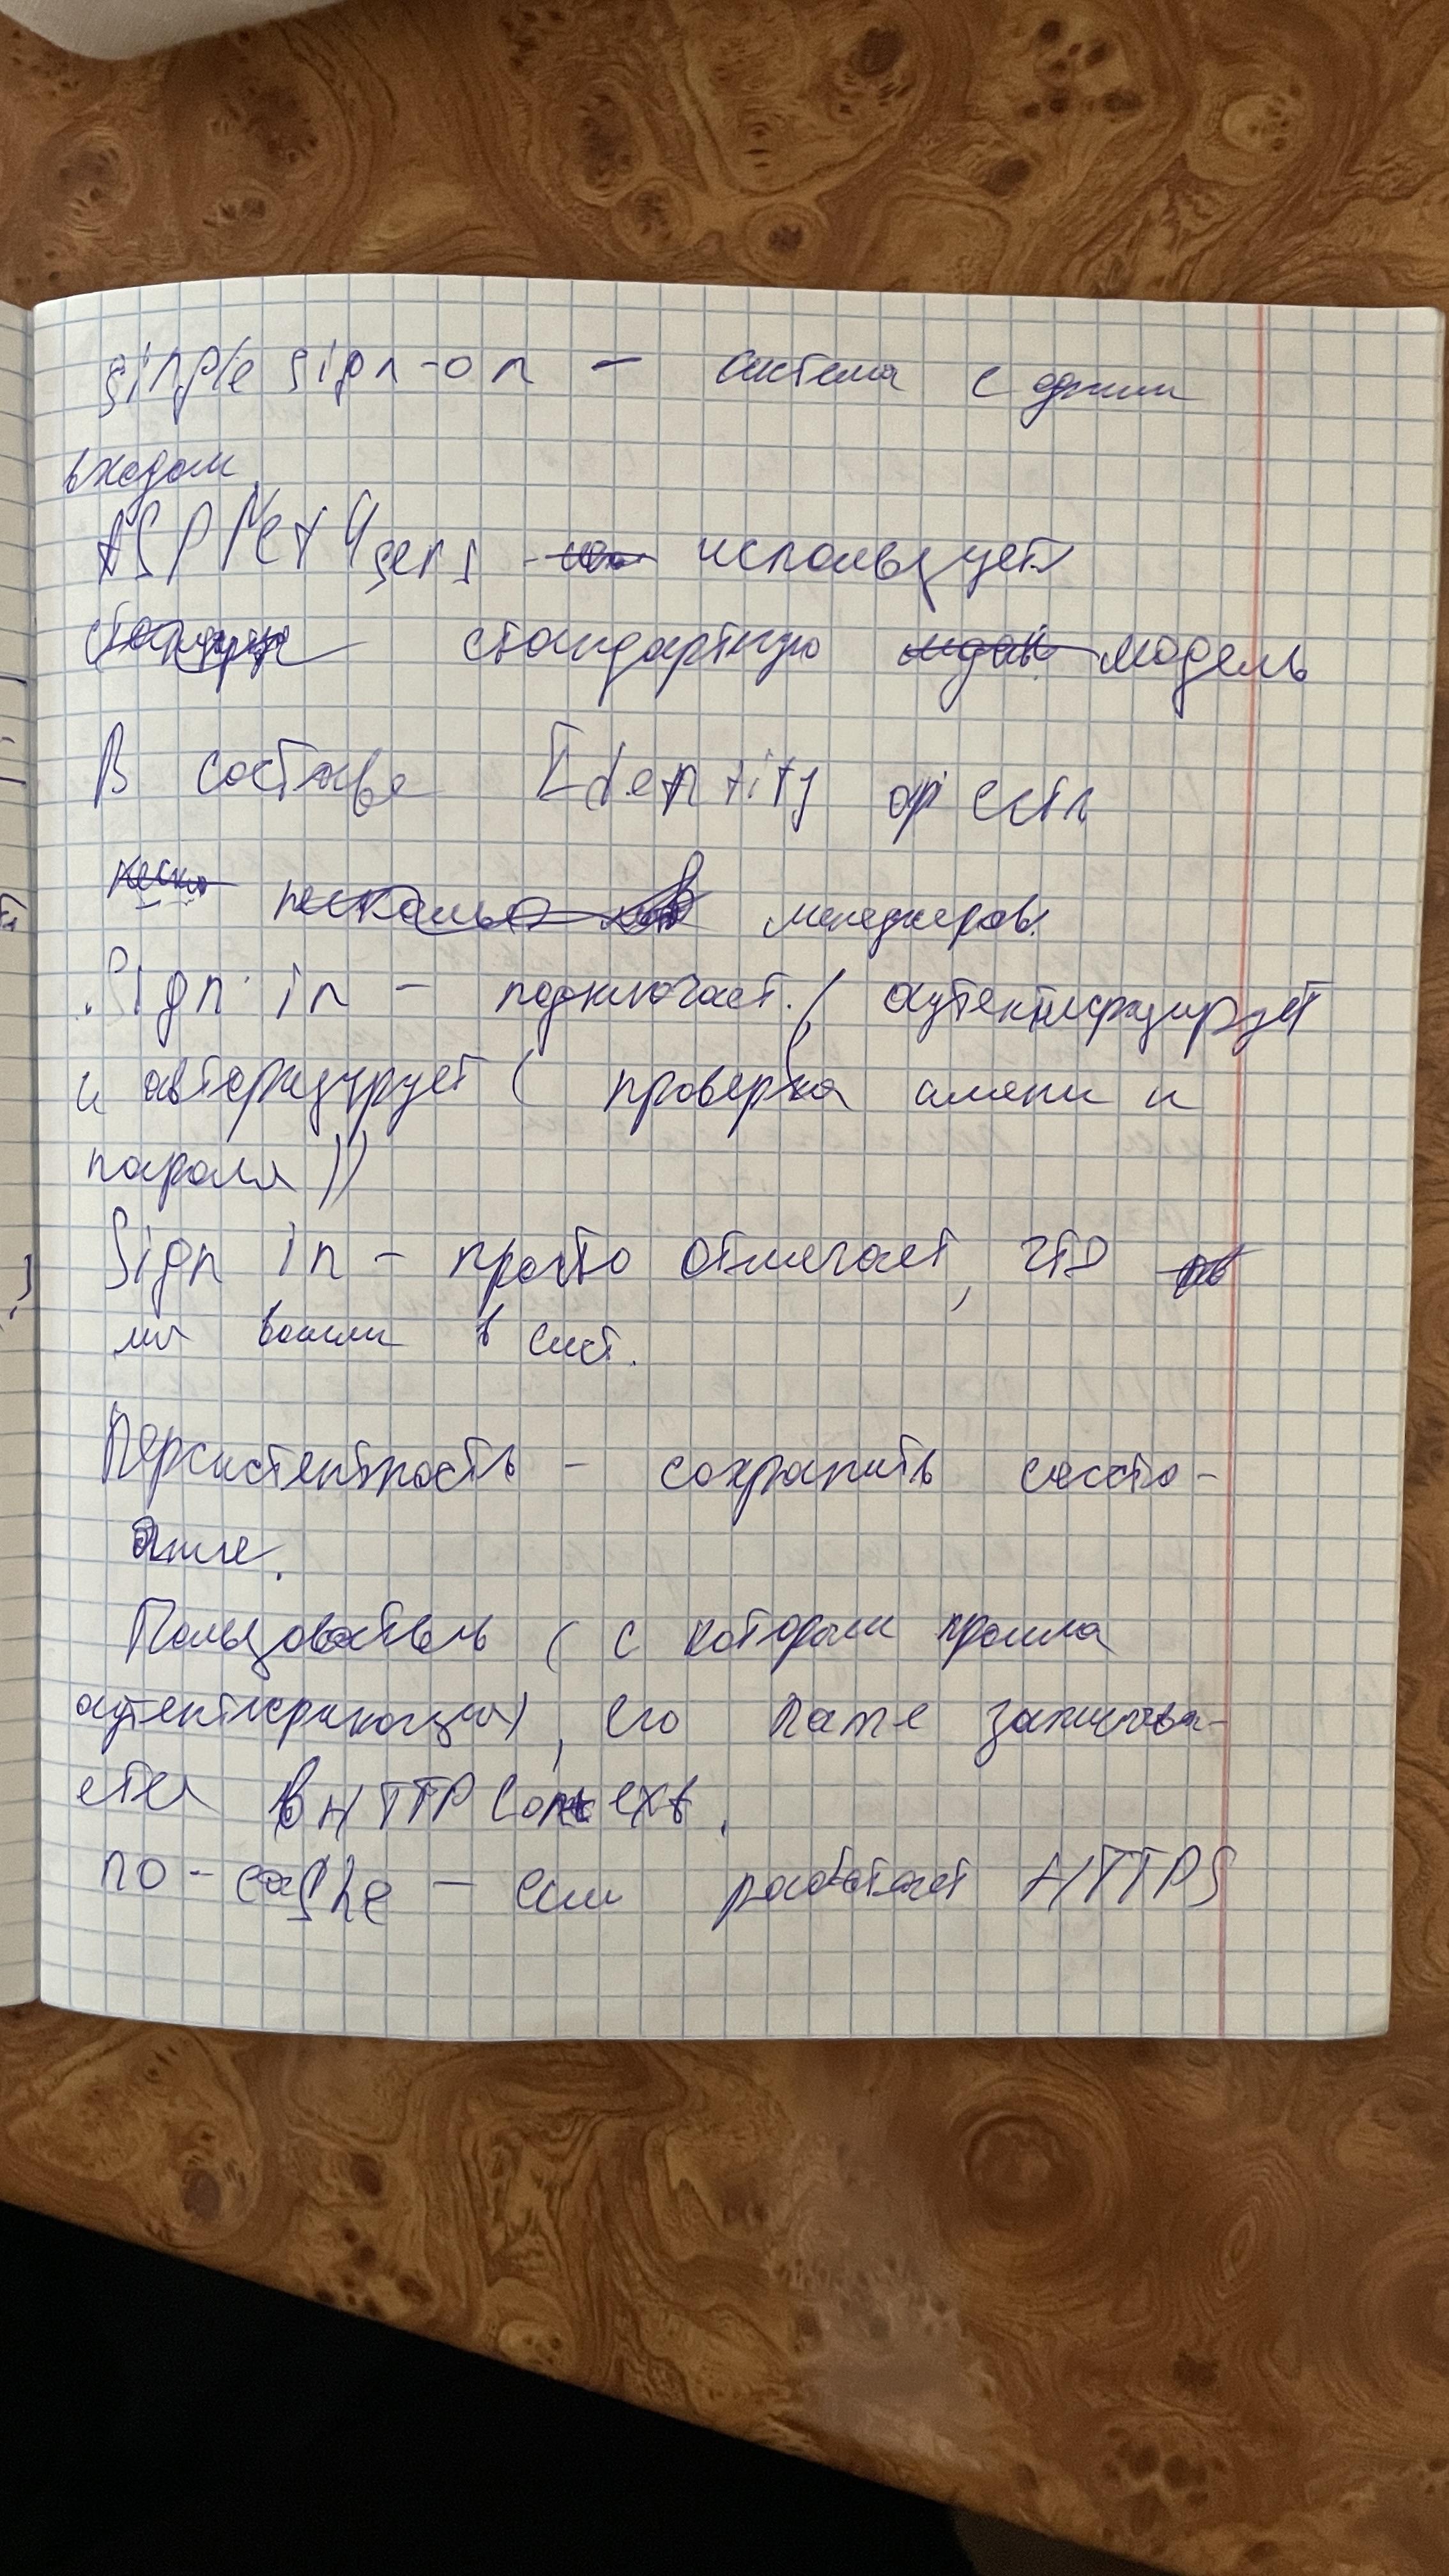 simple sign-on – система с одним
входом
ASPNetUsers – использует
стандартную модель
В составе Identity есть
менеджеров.
Sign in – подключает (аутентифицирует
и авторизирует (проверка имени и
пароля))
Sign in – просто отмечает, что
мы вошли в сист.
Персистентность – сохранить состо-
яние.
Пользователь (с которым прошла
аутентификация), его name записыва-
ется в HTTPContext.
no-cashe – если работает HTTPS